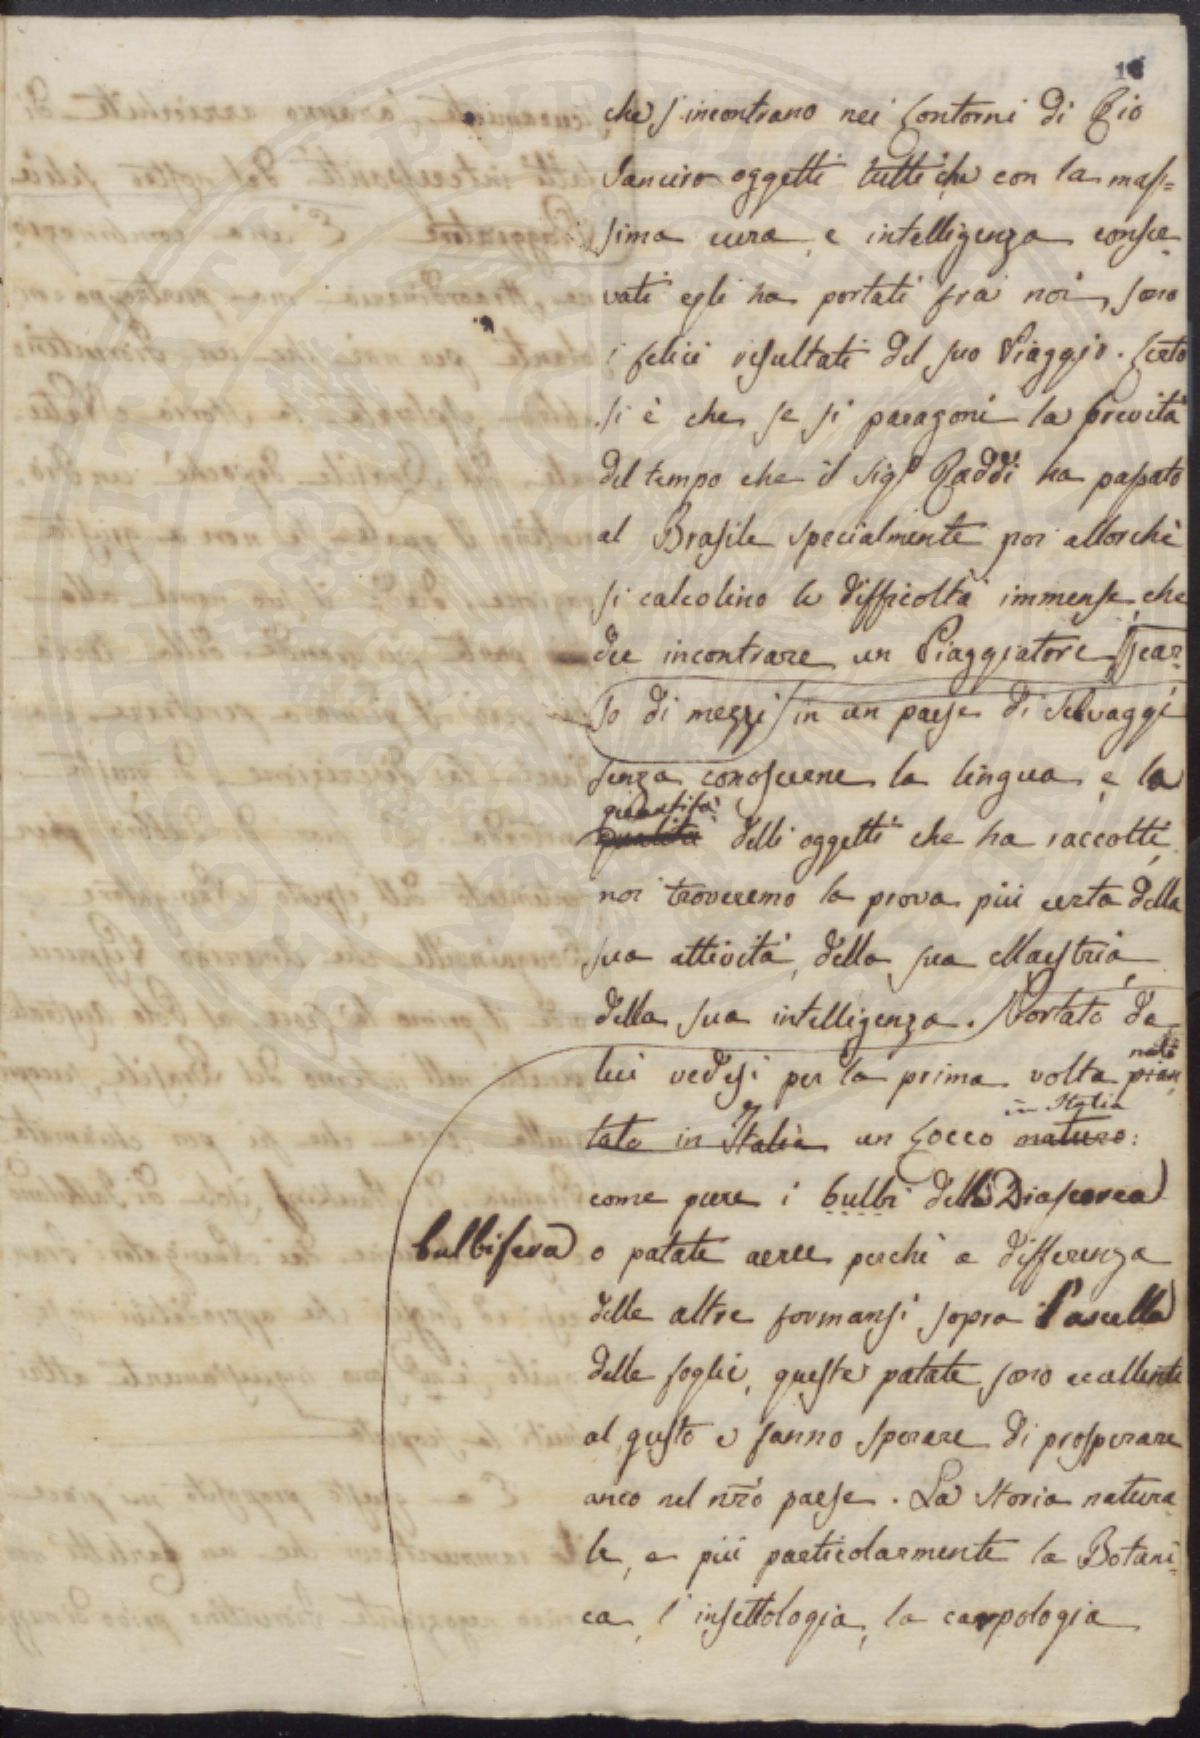 18
che s'incontrano nei Contorni di Rio
Janeiro oggetti tutti che con la mas=
sima cura, e intelligenza conser-
vati egli ha portati fra noi, sono
i felici resultati del suo Viaggio. Certo
si è che se si paragoni la brevità
del tempo che il Sig.r Raddi ha passato
al Brasile specialmente poi allorchè
si calcolino le difficoltà immense, che
dee incontrare un Viaggiatore, scar-
so di mezzi in un paese di Selvaggi
senza conoscerne la lingua, e la
quantità
qualità delli oggetti che ha raccolti,
noi troveremo la prova più certa della
sua attività, della sua Maestria,
della sua intelligenza. Portato da
lui vedesi per la prima volta pian
nato
tato in Italia un Cocco naturo:
in Italia
come pure i bulbi della Dioscorea
bulbifera o patate aeree perchè a differenza
delle altre formansi sopra l'ascella
delle foglie, queste patate sono eccellenti
al gusto e fanno sperare di prosperare
anco nel nr̃o paese. La Storia natura
le, e più particolarmente la Botani-
ca, l'insettologia, la carpologia